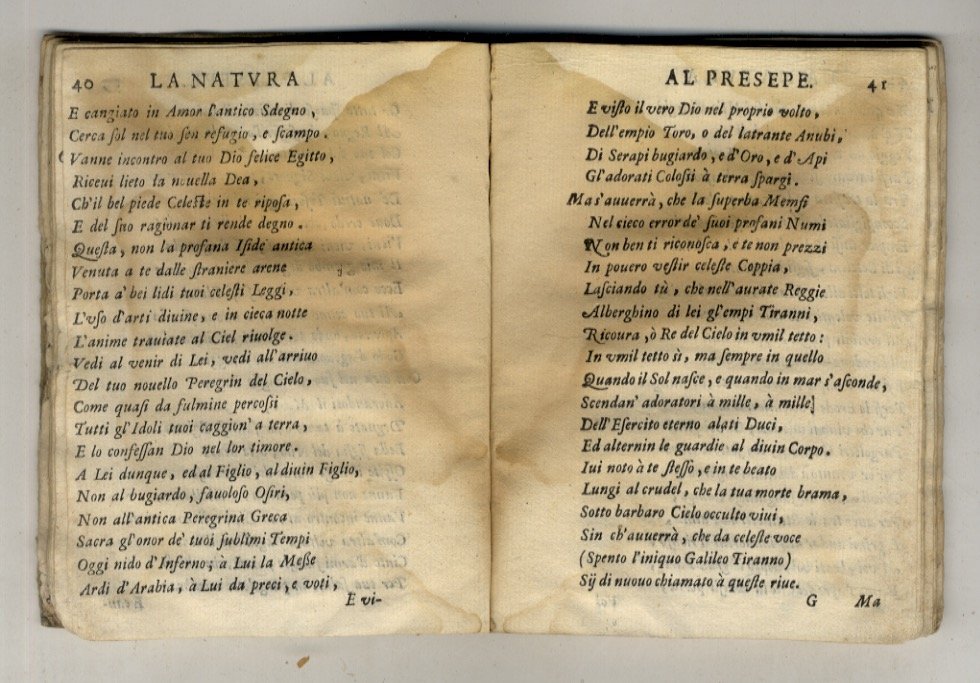 40 LA NATVRA
E cangiato in Amor l'antico Sdegno,
Cerca ſol nel tuo ſen refugio, e ſcampo.
Vanne incontro al tuo Dio felice Egitto,
Riceui lieto la nouella Dea,
Ch'il bel piede Celeſte in te ripoſa,
E del ſuo ragionar ti rende degno.
Queſta, non la profana Iſide antica
Venuta a te dalle ſtraniere arene
Porta a' bei lidi tuoi celeſti Leggi,
L'vſo d'arti diuine, e in cieca notte
L'anime trauiate al Ciel riuolge.
Vedi al venir di Lei, vedi all'arriuo
Del tuo nouello Peregrin del Cielo,
Come quaſi da fulmine percoſſi
Tutti gl'Idoli tuoi caggion' a terra,
E lo confeſſan Dio nel lor timore.
A Lei dunque, ed al Figlio, al diuin Figlio,
Non al bugiardo, fauoloſo Oſiri,
Non all'antica Peregrina Greca
Sacra gl'onor de' tuoi ſublimi Tempi
Oggi nido d'Inferno; à Lui la Meſſe
Ardi d'Arabia, à Lui da preci, e voti,
E vi-
AL PRESEPE. 41
E viſto il vero Dio nel proprio volto,
Dell'empio Toro, o del latrante Anubi,
Di Serapi bugiardo, e d'Oro, e d'Api
Gl'adorati Coloſſi à terra ſpargi.
Ma s'auuerrà, che la ſuperba Memfi
Nel cieco error de' ſuoi profani Numi
Non ben ti riconoſca, e te non prezzi
In pouero veſtir celeſte Coppia,
Laſciando tù, che nell'aurate Reggie
Alberghino di lei gl'empi Tiranni,
Ricoura, ò Re del Cielo in vmil tetto:
In vmil tetto sì, ma ſempre in quello
Quando il Sol naſce, e quando in mar s'aſconde,
Scendan' adoratori à mille, à mille
Dell'Eſercito eterno alati Duci,
Ed alternin le guardie al diuin Corpo.
Iui noto à te ſteſſo, e in te beato
Lungi al crudel, che la tua morte brama,
Sotto barbaro Cielo occulto viui,
Sin ch'auuerrà, che da celeſte voce
(Spento l'iniquo Galileo Tiranno)
Sij di nuouo chiamato à queſte riue.
G Ma